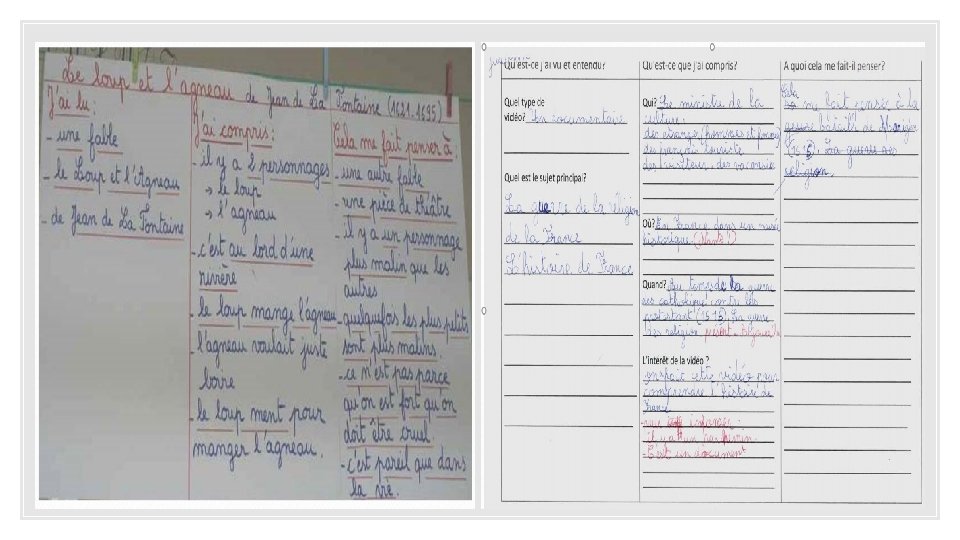 Le loup et l'agneau de Jean de La Fontaine (1621.1695)
J'ai lu :
- une fable
- le Loup et l'Agneau
- de Jean de La Fontaine
J'ai compris :
- il y a 2 personnages
→ le loup
→ l'agneau
- c'est au bord d'une
rivière
- le loup mange l'agneau
- l'agneau voulait juste
boire
- le loup ment pour
manger l'agneau.
Cela me fait penser à :
- une autre fable
- une pièce de théâtre
- il y a un personnage
plus malin que les
autres
- quelquefois les plus petits
sont plus malins.
- ce n'est pas parce
qu'on est fort qu'on
doit être cruel.
- c'est pareil que dans
la vie.
Qu'est-ce j'ai vu et entendu?
Quel type de
vidéo? Un documentaire
Quel est le sujet principal?
La guerre de la religion
de la France
L'histoire de France
Qu'est-ce que j'ai compris?
Qui? Le ministre de la
culture.
des (hommes et femmes)
des français touriste
Où? En France dans un
historique
Quand? Au temps de la guerre
des catholique contre les
protestant La guerre
des religion
L'intérêt de la vidéo ?
on fait cette vidéo pour
comprendre l'histoire de
France
il y a un
- C'est un document
A quoi cela me fait-il penser?
Cela
me fait penser à la
bataille de Marignan
La guerre de
religion.